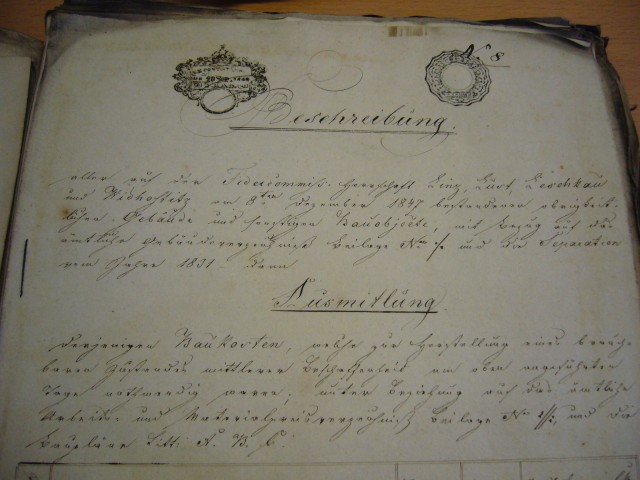 No 8
Beschreibung.
aller auf der Fideicommiss-Herrschaft Linz, Lust, Leschkau
und Widhostitz am 8ten Dezember 1847 bestandenen obrigkeit-
lichen Gebäude und sonstigen Bauobjecte, mit Bezug auf das
ämtliche Gebäudeverzeichniß Beilage No 1/. und die Separation
vom Jahre 1831. dann
Ausmitlung
derjenigen Baukosten, welche zur Herstellung eines brauch-
baren Zustandes mittlerer Beschaffenheit am oben angeführten
Tage nothwendig waren; unter Beziehung auf das ämtliche
Arbeits- und Materialpreisverzeichniß Beilage No und die
Baupläne Litt: A. B. C.